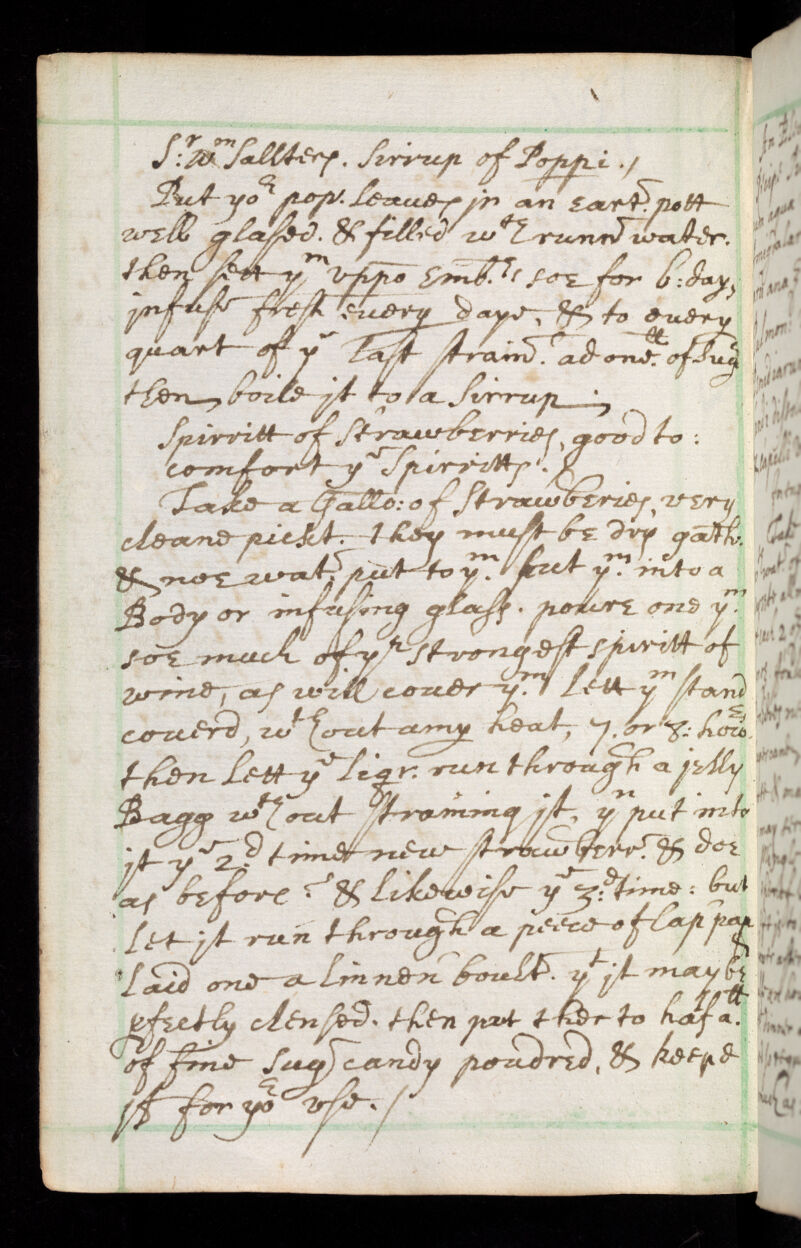 Sr: Wm Sallters. Sirrup of Poppi./
Put yor pop. leaues jn an eart. pott
well glased. & filled wth runn water.
then sett ym vppo Emb.rs soe for 6: days
jnfuse fresh euery daye, & to euery
quart of ye last strain. ad one. tt of Sug
then boile jt to a Sirrup;
Spirritt of Strawberries, good to:
comfort ye Spirritts.
Take a Gallo: of Strawberies, very
cleane pickt. they must be dry gath.
& noe wat. put to ym. put ym. into a
Body or infusing glass. poure one ym.
soe much of ye strongest spiritt of
wine, as will couer ym. Lett ym stand
couerd, wth out amy heat, 7. or 8: howrs.
then Lett ye Liqr. run through a jelly
Bagg wth out straining jt, yn put into
jt ye 2d time new strawberr. & doe
as before: & likewise ye 3:d time: but
Let jt run through a peece of Cap pap
Laid one a linnen boult. yt jt may be
pfectly clensed. then put ther to half a. tt
of fine Sug candy poudred, & keepe
jt for yor vse./